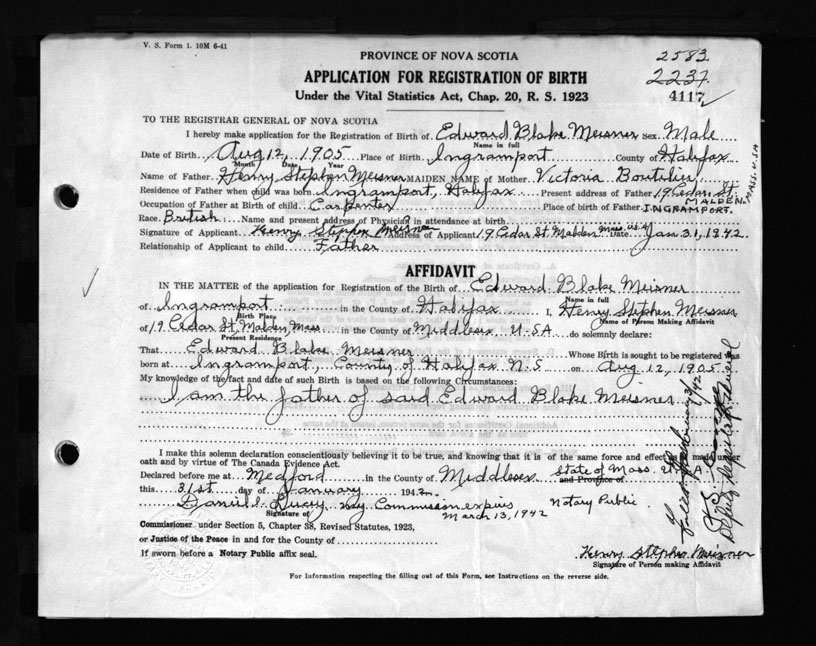 V. S. Form 1. 10M 6-41
PROVINCE OF NOVA SCOTIA
2583
APPLICATION FOR REGISTRATION OF BIRTH
2237
Under the Vital Statistics Act, Chap. 20, R. S. 1923
4117
TO THE REGISTRAR GENERAL OF NOVA SCOTIA
I hereby make application for the Registration of Birth of Edward Blake Meisner Sex Male
Name in full
Date of Birth Aug 12, 1905 Place of Birth Ingramport, County of Halifax
Month Date Year
Name of Father Henry Stephen Meisner MAIDEN NAME of Mother Victoria Boutilier
Residence of Father when child was born Ingramport, Halifax Present address of Father 19 Cedar St. MALDEN. MASS. U.S.A
Occupation of Father at Birth of child Carpenter Place of birth of Father INGRAMPORT.
Race British Name and present address of Physician in attendance at birth
Signature of Applicant Henry Stephen Meisner Address of Applicant 19 Cedar St. Malden Mass. U.S.A. Date Jan 31, 1942.
Relationship of Applicant to child Father
AFFIDAVIT
IN THE MATTER of the application for Registration of the Birth of Edward Blake Meisner
Name in full
of Ingramport in the County of Halifax I, Henry Stephen Meisner
Birth Place Name of Person Making Affidavit
of 19 Cedar St. Malden, Mass in the County of Middlesex U.S.A do solemnly declare:
Present Residence
That Edward Blake Meisner Whose Birth is sought to be registered was
born at Ingramport, County of Halifax N.S on Aug 12, 1905.
My knowledge of the fact and date of such Birth is based on the following Circumstances:
I am the father of said Edward Blake Meisner
I make this solemn declaration conscientiously believing it to be true, and knowing that it is of the same force and effect as if made under
oath and by virtue of The Canada Evidence Act.
Declared before me at Medford in the County of Middlesex State of Mass. U.S.A
and Province of
this 31st day of January 1942.
Daniel My Commission expires Notary Public
Signature of March 13, 1942
Commissioner under Section 5, Chapter 38, Revised Statutes, 1923,
or Justice of the Peace in and for the County of
If sworn before a Notary Public affix seal.
Henry Stephen Meisner
Signature of Person making Affidavit
For Information respecting the filling out of this Form, see Instructions on the reverse side.